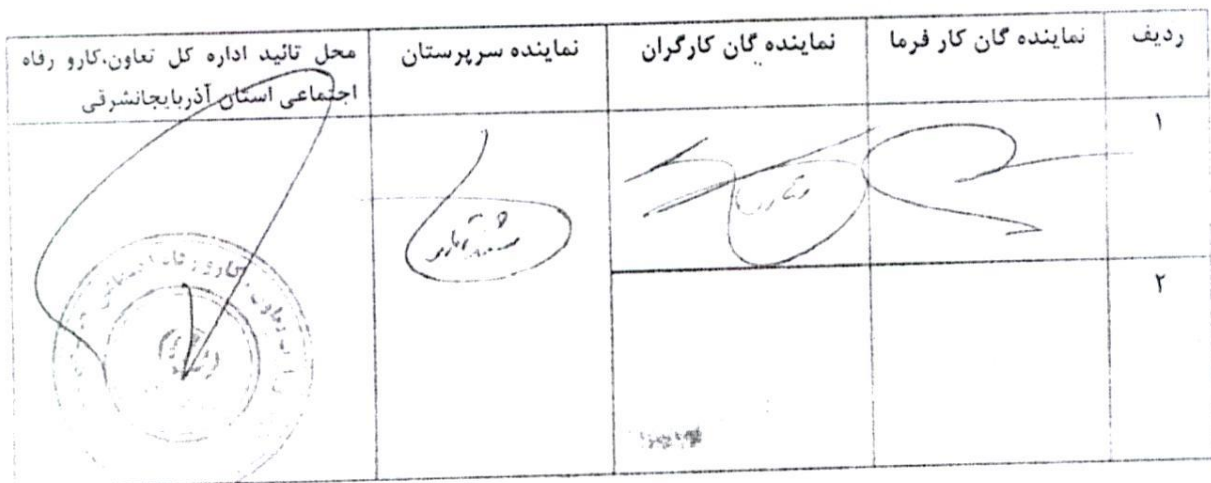 ردیف
نماینده گان کار فرما
نماینده گان کارگران
نماینده سرپرستان
محل تائید اداره کل تعاون،کارو رفاه
اجتماعی استان آذربایجانشرقی
۱
۲